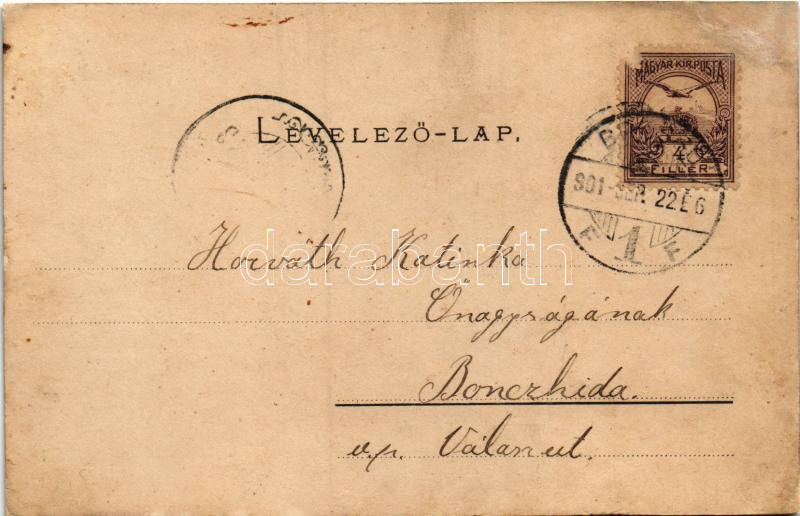 MAGYAR KIR. POSTA
4
FILLÉR
LEVELEZŐ-LAP.
901 SEP. 22 E 6
1
F F
Horváth Katinka
Őnagyságának
Bonczhida.
u.p. Válaszut.
darabanth